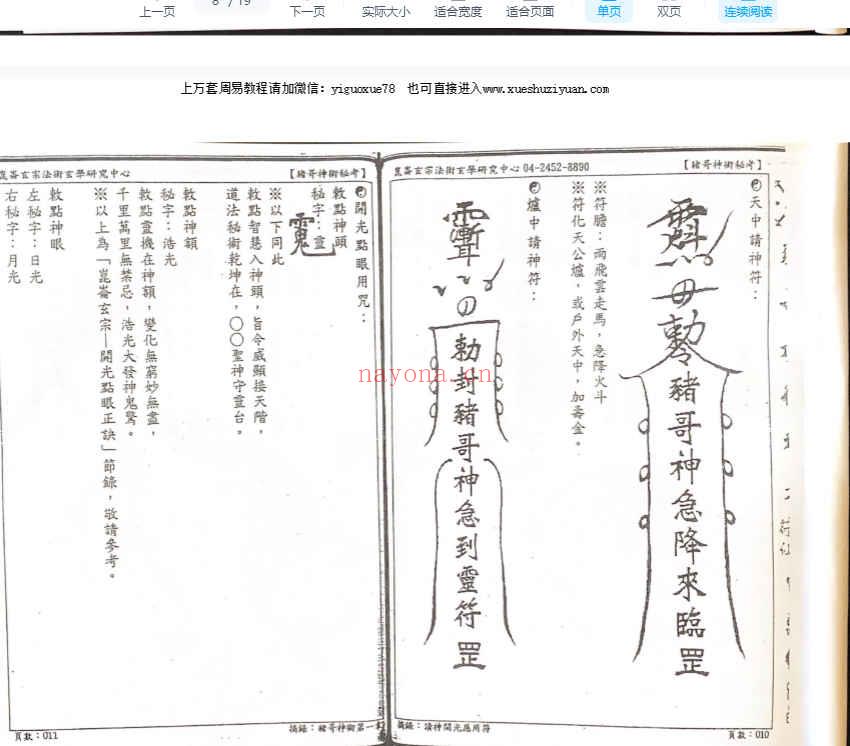 上一页
8 / 19
下一页
实际大小
适合宽度
适合页面
单页
双页
连续阅读
上万套周易教程请加微信: yiguoxue78 也可直接进入www.xueshuziyuan.com
崑崙玄宗法術玄學研究中心 04-2452-8890
【豬哥神術秘考】
天中請神符：
敕令豬哥神急降來臨罡
※符膽：雨飛雲走馬，急降火斗
※符化天公爐，或戶外天中，加壽金。
爐中請神符：
勅封豬哥神急到靈符罡
摘錄：請神開光應用符
頁數：010
崑崙玄宗法術玄學研究中心
【豬哥神術秘考】
開光點眼用咒：
敕點神頭
秘字：靈
※以下同此
敕點智慧入神頭，旨令威顯接天階，
道法秘術乾坤在，○○聖神守靈台。
敕點神額
秘字：浩光
敕點靈機在神額，變化無窮妙無盡，
千里萬里無禁忌，浩光大發神鬼驚。
※以上為「崑崙玄宗—開光點眼正訣」節錄，敬請參考。
敕點神眼
左秘字：日光
右秘字：月光
摘錄：豬哥神術第一
頁數：011
nayona.cn